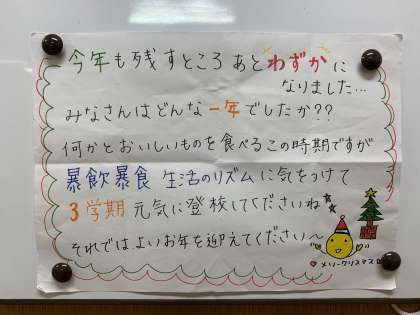 今年も残すところあとわずかに
なりました…
みなさんはどんな一年でしたか??
何かとおいしいものを食べるこの時期ですが
暴飲暴食 生活のリズムに気をつけて
3学期 元気に登校してくださいね
それでは、よいお年を迎えてください〜
♡メリークリスマス